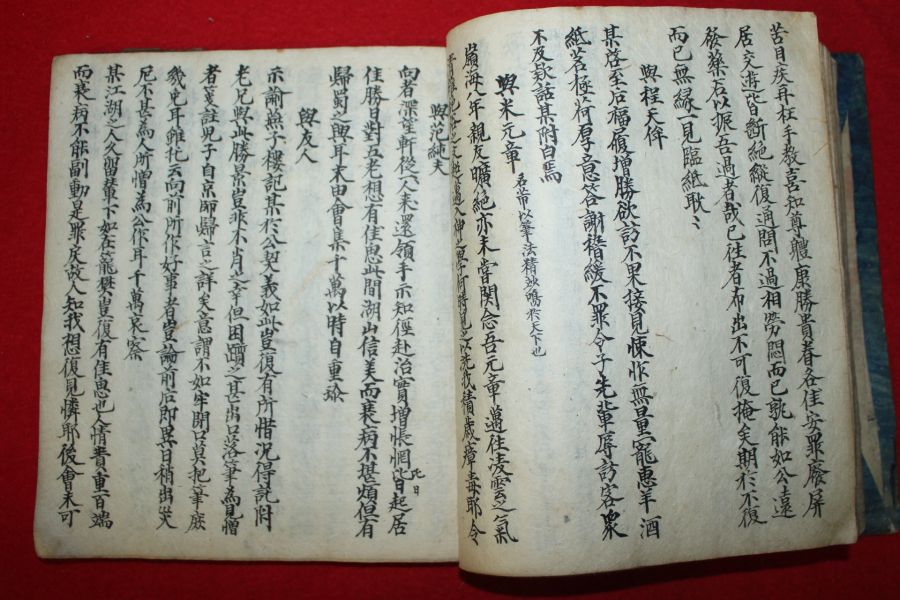 苦目疾再枉手教喜知尊軆康勝貴眷各佳安罪廢屏
居交遊皆斷絕縱復通問不過相勞悶而已孰能如公遠
發藥石以振吾過者哉已往者布出不可復掩矣期於不復
而已無緣一見臨紙耿〻
與程天侔
某啓至后福履增勝欲訪不果接見悚怍無量寵惠羊酒
紙茗極荷厚意答謝稽緩不罪令子先輩辱訪客衆
不及欵話某附白焉
與米元章 名芾以筆法精妙鳴於天下也
嶺海八年親友曠絕亦未嘗関念吾元章邁往凌雲之氣
清雄絕俗之文超邁入神之字何時見之以洗我積歲瘴毒耶今
與范純夫
向者深望軒從一來還領手示知徑赴治實增悵惘比日起居
佳勝日對五老想有佳思此間湖山信美而衰病不堪煩但有
歸蜀之興耳未由會集千萬以時自重
與友人
示諭燕子樓記某於公契義如此豈復有所惜況得託附
老兄與此勝景豈非不肖之幸但困躓之甚出口落筆為見憎
者箋註兒子自京師歸言之詳矣意謂不如牢閉口莫把筆庶
幾免耳雖托云向前所作好事者豈論前后即異日稍出災
厄不甚為人所憎為公作耳千萬哀察
某江湖之人久留輦下如在籠樊豈復有佳思也人情責重百端
而衰病不能副動是罪戾故人知我想復見憐耶後會未可